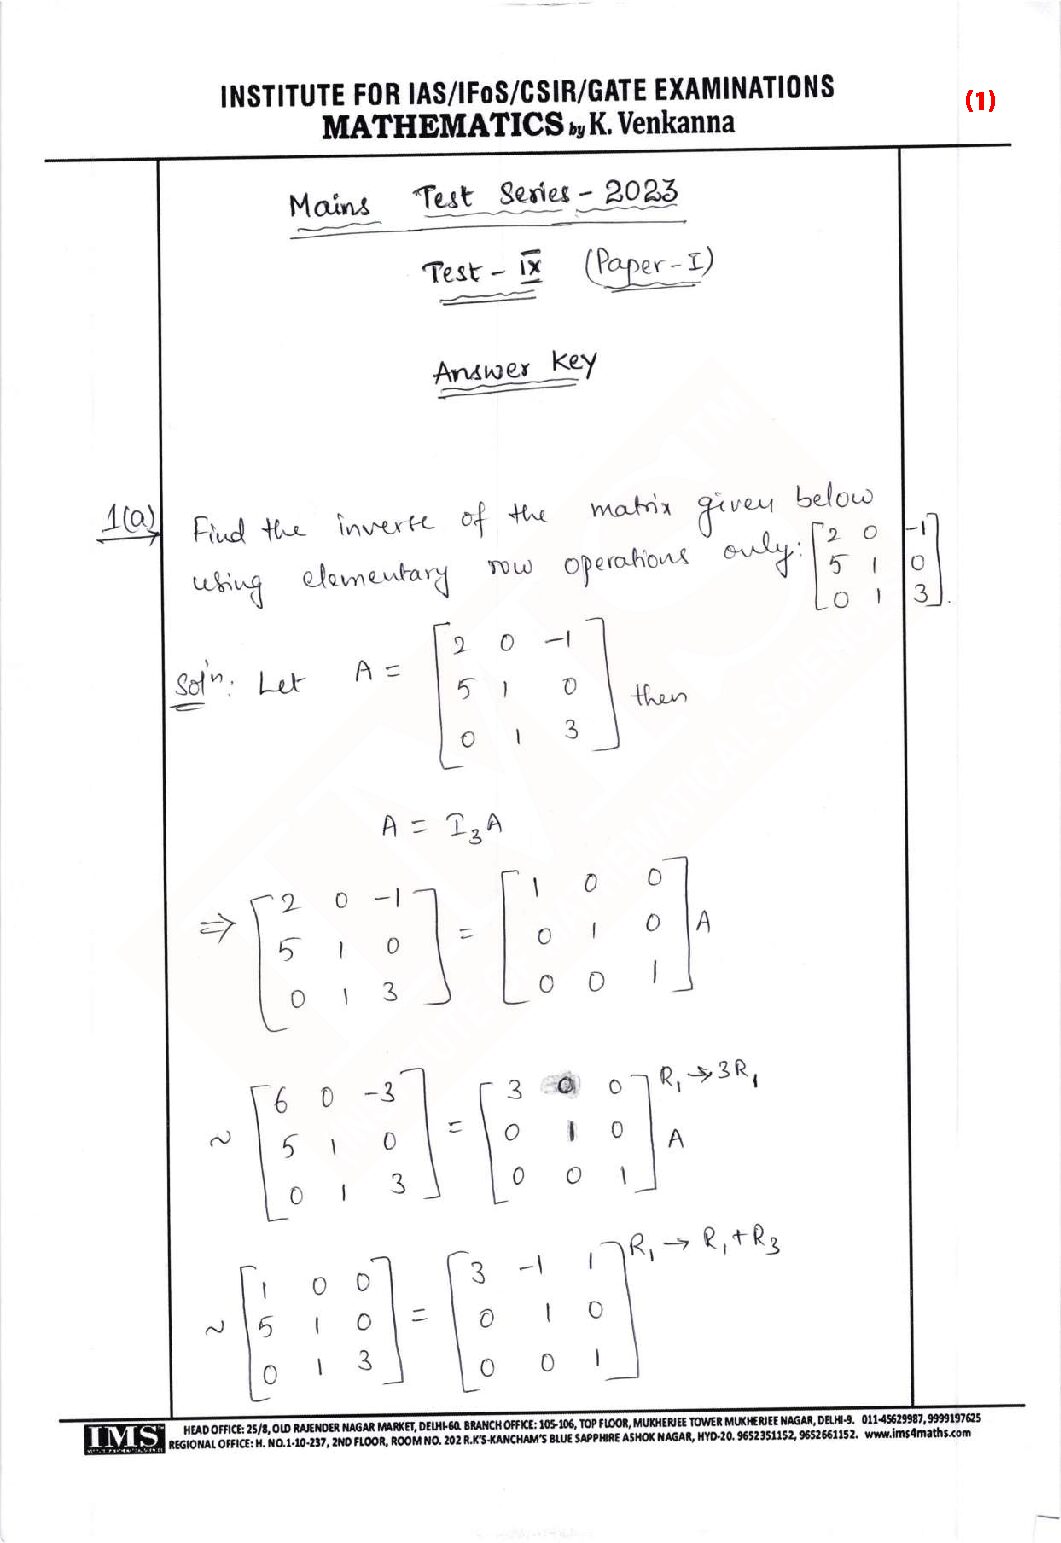 INSTITUTE FOR IAS/IFoS/CSIR/GATE EXAMINATIONS
MATHEMATICS by K. Venkanna
(1)
Mains Test Series - 2023
Test - IX (Paper - I)
Answer Key
1(a) Find the inverse of the matrix given below
using elementary row operations only: [2 0 -1
5 1 0
0 1 3].
Sol'n: Let A = [2 0 -1
5 1 0
0 1 3] then
A = I₃A
⇒ [2 0 -1
5 1 0
0 1 3] = [1 0 0
0 1 0
0 0 1] A
~ [6 0 -3
5 1 0
0 1 3] = [3 0 0
0 1 0
0 0 1] A R₁ → 3R₁
~ [1 0 0
5 1 0
0 1 3] = [3 -1 1
0 1 0
0 0 1] R₁ → R₁ + R₃
IMS
HEAD OFFICE: 25/8, OLD RAJENDER NAGAR MARKET, DELHI-60. BRANCH OFFICE: 105-106, TOP FLOOR, MUKHERJEE TOWER MUKHERJEE NAGAR, DELHI-9. 011-45629987, 9999197625
REGIONAL OFFICE: H. NO.1-10-237, 2ND FLOOR, ROOM NO. 202 R.K'S-KANCHAM'S BLUE SAPPHIRE ASHOK NAGAR, HYD-20. 9652351152, 9652661152. www.ims4maths.com